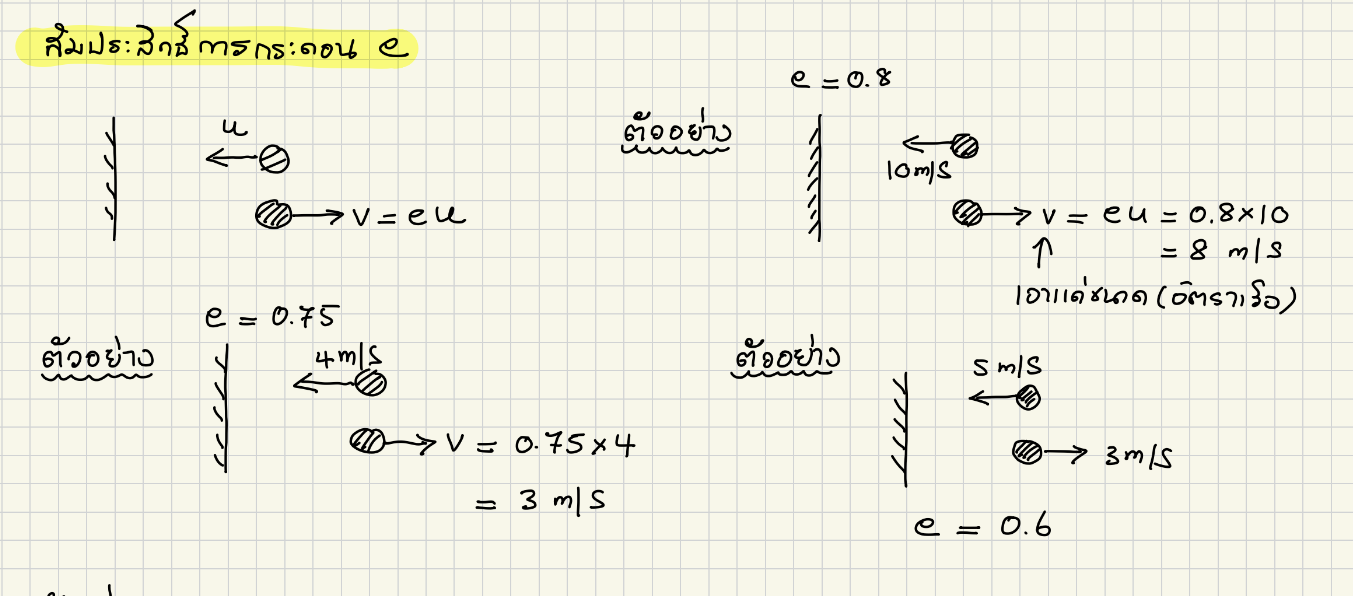 สัมประสิทธิ์ การกระดอน e
u
v = e u
ตัวอย่าง
e = 0.8
10 m/s
v = e u = 0.8 × 10
= 8 m/s
↑
เอาแต่ขนาด (อัตราเร็ว)
ตัวอย่าง
e = 0.75
4 m/s
v = 0.75 × 4
= 3 m/s
ตัวอย่าง
5 m/s
3 m/s
e = 0.6